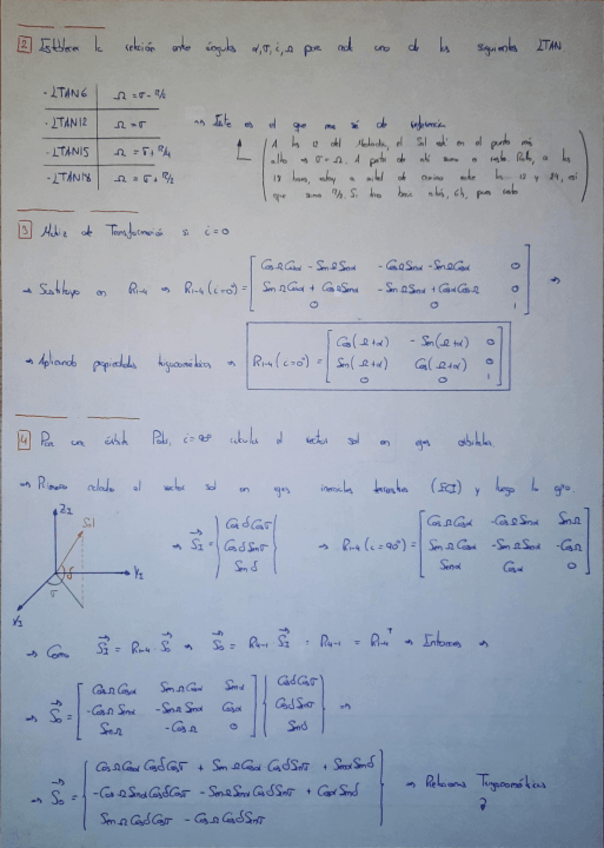 2 Establecer la relación entre ángulos α, σ, i, Ω para cada uno de los siguientes LTAN
· LTAN6 Ω = σ - π/2
· LTAN12 Ω = σ ⇒ Este es el que me sé de referencia
· LTAN15 Ω = σ + π/4
· LTAN18 Ω = σ + π/2
(A las 12 del Mediodía, el Sol está en el punto más
alto ⇒ σ = Ω. A partir de ahí sumo o resto. Para, a las
18 horas, estoy a mitad de camino entre las 12 y 24, así
que sumo π/2. Si tras hacia atrás, pues resto)
3 Matriz de Transformación si i = 0
⇒ Sustituyo en R1-4 ⇒ R1-4 (i=0°) = [ CosΩCosα - SenΩSenα -CosΩSenα - SenΩCosα 0 ⇒
SenΩCosα + CosΩSenα -SenΩSenα + CosαCosΩ 0
0 0 1 ]
⇒ Aplicando propiedades trigonométricas ⇒ R1-4 (i=0°) = [ Cos(Ω+α) -Sen(Ω+α) 0
Sen(Ω+α) Cos(Ω+α) 0
0 0 1 ]
4 Para una órbita Polar, i = 90° calcula el vector sol en ejes orbitales
⇒ Primero calculo el vector sol en ejes inerciales terrestres (ECI) y luego lo giro.
Z_I Sol δ σ Y_I X_I
⇒ S_I = { Cosδ Cosσ
Cosδ Senσ
Senδ }
⇒ R1-4 (i=90°) = [ CosΩCosα -CosΩSenα SenΩ
SenΩCosα -SenΩSenα -CosΩ
Senα Cosα 0 ]
⇒ Como S_I = R1-4 · S_o ⇒ S_o = R4-1 S_I : R4-1 = R1-4^T ⇒ Entonces ⇒
⇒ S_o = [ CosΩCosα SenΩCosα Senα
-CosΩ Senα -SenΩ Senα Cosα
SenΩ -CosΩ 0 ] { CosδCosσ
CosδSenσ
Senδ } ⇒
⇒ S_o = { CosΩCosα CosδCosσ + SenΩCosα CosδSenσ + Senα Senδ
-CosΩSenαCosδCosσ - SenΩSenαCosδSenσ + CosαSenδ
SenΩCosδCosσ - CosΩCosδSenσ } ⇒ Relaciones Trigonométricas
?